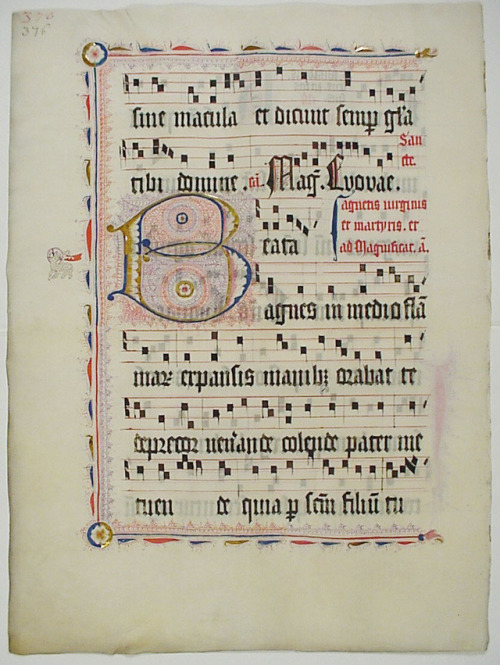 376
sine macula et dicunt semp gl̄a
tibi domine. añ. Mag̃. Evovae.
San
cte
agnetis uirginis
et martyris. et
ad Magnificat. a̅.
Beata
agnes in medio flā
maꝝ expansis manibꝫ orabat te
deprecor uen̄ande colende pater me
tuen de quia p sc̄m filiū tu